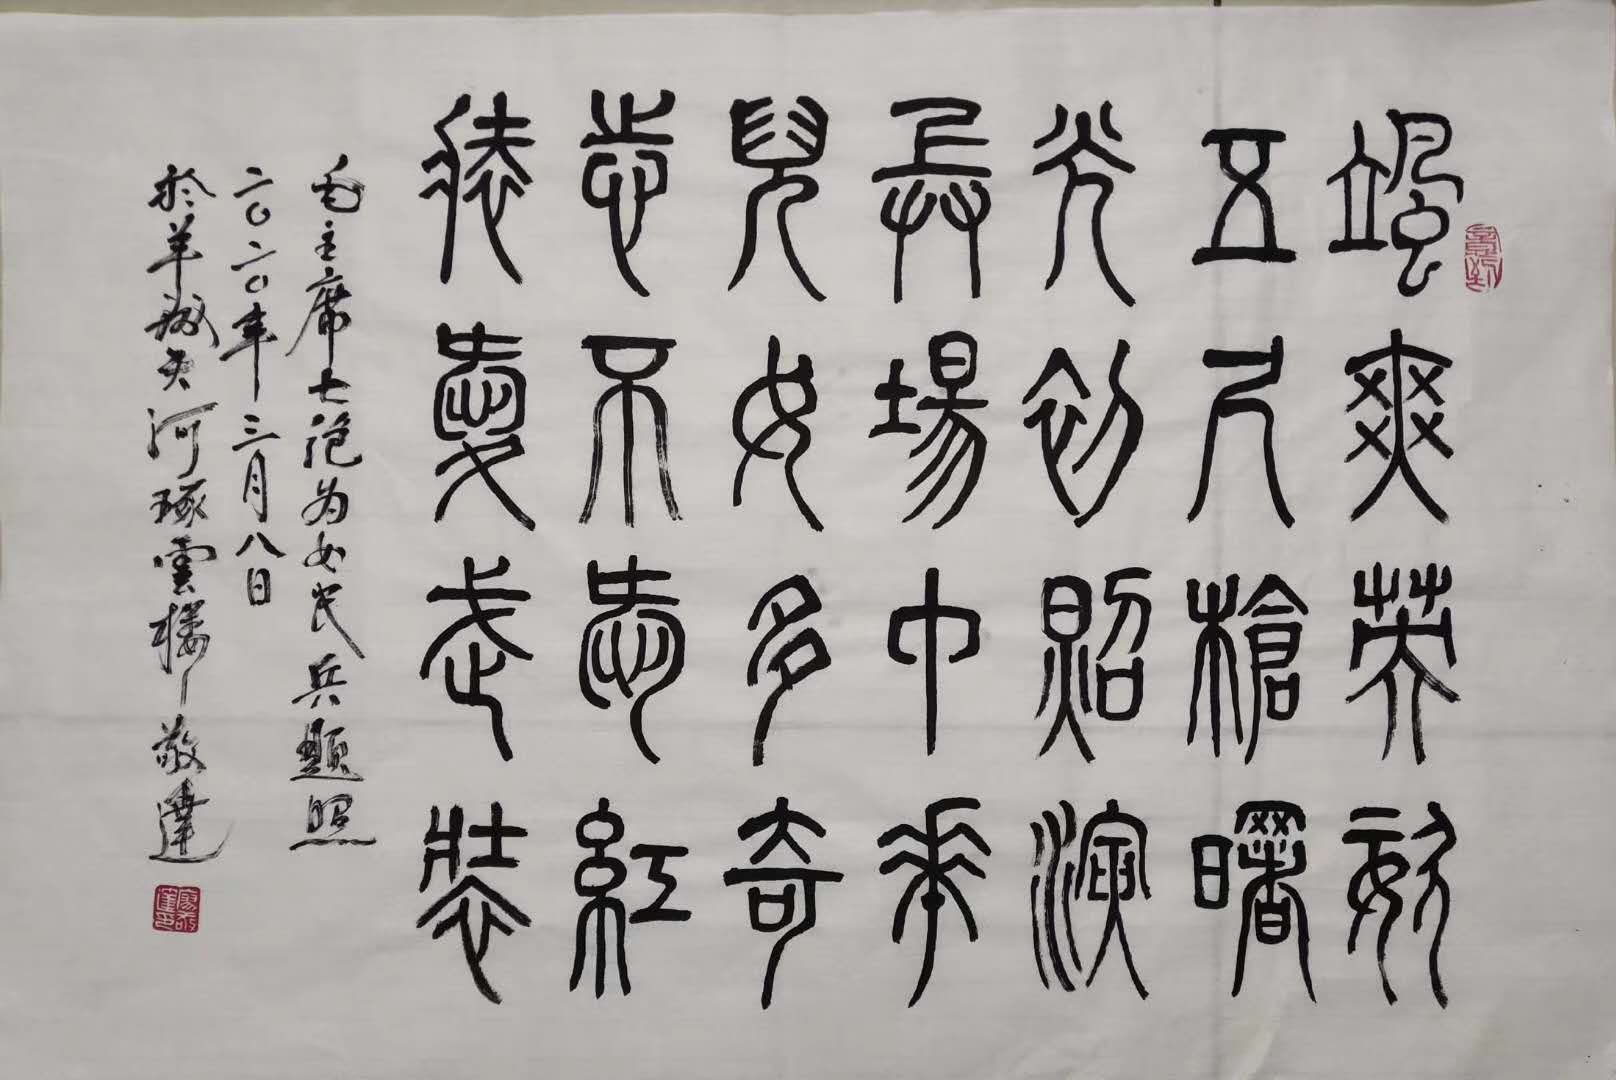 颯爽英姿
五尺槍曙
光初照演
兵場中華
兒女多奇
志不愛紅
裝愛武裝
毛主席七絕为女民兵題照
二〇二〇年三月八日
於羊城天河琢雲樓敬達